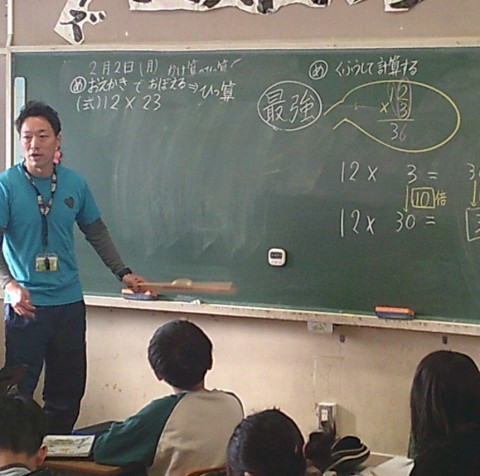 2月2日(月) かけ算のひっ算
め おえかきでおぼえる⇒ひっ算
(式)12×23
め くふうして計算する
最強
12
×3
36
12× 3=
10倍
12× 30=